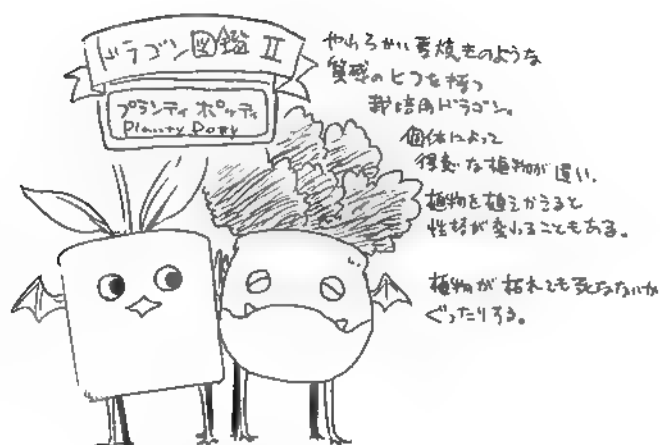 ドラゴン図鑑 II
プランティ ポッティ
Planty Potty
やわらかい素焼きのような
質感のヒフを持つ
栽培用ドラゴン。
個体によって
得意な植物が違い、
植物を植えかえると
性格が変わることもある。
植物が枯れても死なないが
ぐったりする。